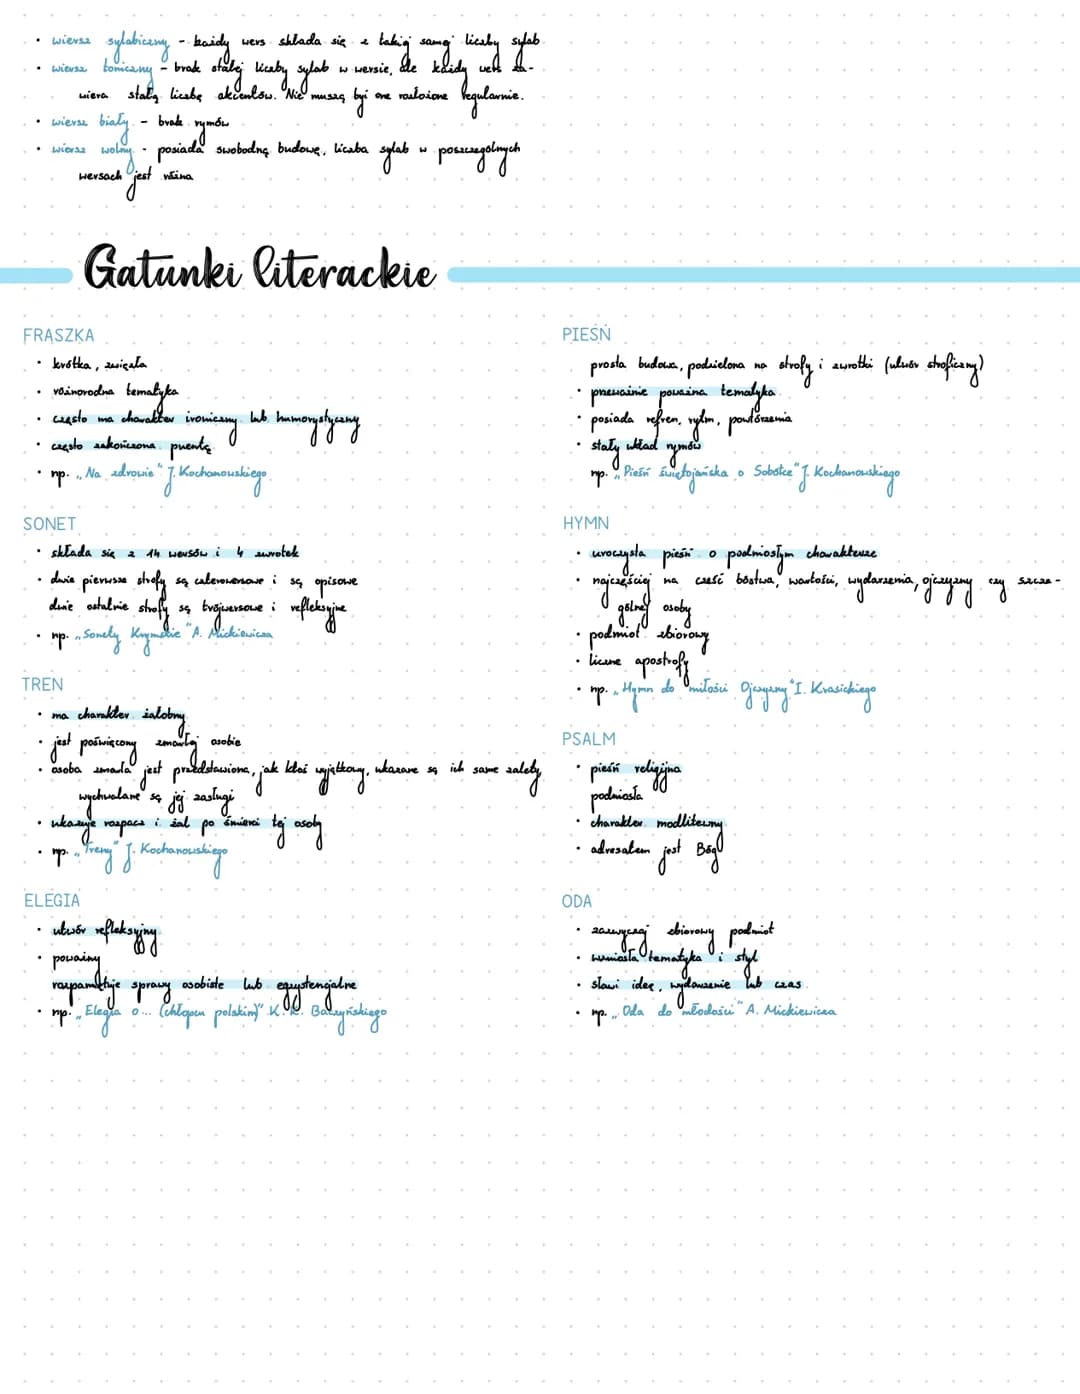 • wiersz sylabiczny - każdy wers składa się z takiej samej liczby sylab
• wiersz toniczny - brak stałej liczby sylab w wersie, ale każdy wers za-
wiera stałą liczbę akcentów. Nie muszą być one rozłożone regularnie.
• wiersz biały - brak rymów
• wiersz wolny - posiada swobodną budowę, liczba sylab w poszczególnych
wersach jest różna
Gatunki literackie
FRASZKA
• krótka, zwięzła
• różnorodna tematyka
• często ma charakter ironiczny lub humorystyczny
• często zakończona puentą
• np. „Na zdrowie" J. Kochanowskiego
SONET
• składa się z 14 wersów i 4 zwrotek
• dwie pierwsze strofy są czterowersowe i są opisowe
dwie ostatnie strofy są trójwersowe i refleksyjne
• np. „Sonety Krymskie" A. Mickiewicza
TREN
• ma charakter żałobny
• jest poświęcony zmarłej osobie
• osoba zmarła jest przedstawiona, jak ktoś wyjątkowy, ukazane są ich same zalety,
wychwalane są jej zasługi
• ukazuje rozpacz i żal po śmierci tej osoby
• np. „Treny" J. Kochanowskiego
ELEGIA
• utwór refleksyjny
• poważny
rozpamiętuje sprawy osobiste lub egzystencjalne
• np. „Elegia o... (chłopcu polskim)" K. K. Baczyńskiego
PIEŚŃ
prosta budowa, podzielona na strofy i zwrotki (utwór stroficzny)
• przeważnie poważna tematyka
• posiada refren, rytm, powtórzenia
• stały układ rymów
np. „Pieśń świętojańska o Sobótce" J. Kochanowskiego
HYMN
• uroczysta pieśń o podniosłym charakterze
• najczęściej na cześć bóstwa, wartości, wydarzenia, ojczyzny czy szcze-
gólnej osoby
• podmiot zbiorowy
• liczne apostrofy
• np. „Hymn do miłości Ojczyzny" I. Krasickiego
PSALM
• pieśń religijna
podniosła
• charakter modlitewny
• adresatem jest Bóg
ODA
• zazwyczaj zbiorowy podmiot
• wzniosła tematyka i styl
• sławi ideę, wydarzenie lub czas
• np. „Oda do młodości" A. Mickiewicza